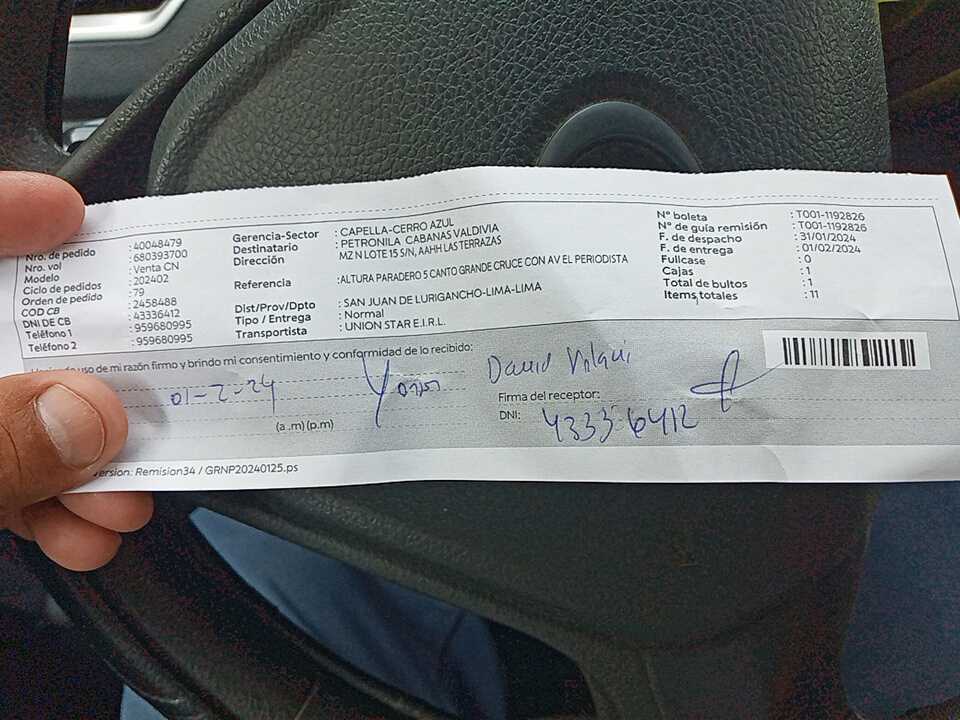 Nro. de pedido : 40048479
Nro. vol : 680393700
Modelo : Venta CN
Ciclo de pedidos : 202402
Orden de pedido : 79
COD CB : 2458488
DNI DE CB : 43336412
Teléfono 1 : 959680995
Teléfono 2 : 959680995
Gerencia-Sector : CAPELLA-CERRO AZUL
Destinatario : PETRONILA CABANAS VALDIVIA
Dirección MZ N LOTE 15 S/N, AAHH LAS TERRAZAS
Referencia : ALTURA PARADERO 5 CANTO GRANDE CRUCE CON AV EL PERIODISTA
Dist/Prov/Dpto : SAN JUAN DE LURIGANCHO-LIMA-LIMA
Tipo / Entrega : Normal
Transportista : UNION STAR E.I.R.L.
N° boleta : T001-1192826
N° de guía remisión : T001-1192826
F. de despacho : 31/01/2024
F. de entrega : 01/02/2024
Fullcase : 0
Cajas : 1
Total de bultos : 1
Items totales : 11
uso de mi razón firmo y brindo mi consentimiento y conformidad de lo recibido:
01-2-24
David
(a .m) (p.m)
Firma del receptor:
DNI: 43336412
version: Remision34 / GRNP20240125.ps